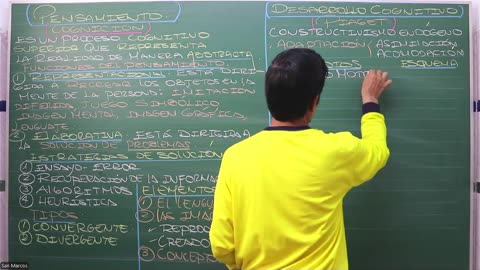 PENSAMIENTO
(COGNICIÓN)
ES UN PROCESO COGNITIVO
SUPERIOR QUE REPRESENTA
LA REALIDAD DE MANERA ABSTRACTA
FUNCIONES DEL PENSAMIENTO
① REPRESENTACIONAL: ESTÁ DIRI-
GIDA A RECREAR LOS OBJETOS EN LA
MENTE DE LA PERSONA: IMITACIÓN
DIFERIDA, JUEGO SIMBÓLICO,
IMAGEN MENTAL, IMAGEN GRÁFICA,
LENGUAJE
② ELABORATIVA: ESTÁ DIRIGIDA A
LA SOLUCIÓN DE PROBLEMAS
ESTRATEGIAS DE SOLUCIÓN
① ENSAYO-ERROR
② RECUPERACIÓN DE LA INFORMA
③ ALGORITMOS
④ HEURÍSTICA
TIPOS
① CONVERGENTE
② DIVERGENTE
ELEMENTOS
① EL LENGU
② LAS IMÁG
REPROD
(CREADO
③ CONCEPTO
DESARROLLO COGNITIVO
(PIAGET)
CONSTRUCTIVISMO ENDÓGENO
ADAPTACIÓN ASIMILACIÓN
ACOMODACIÓN
ESQUEMA
MOT
San Marcos